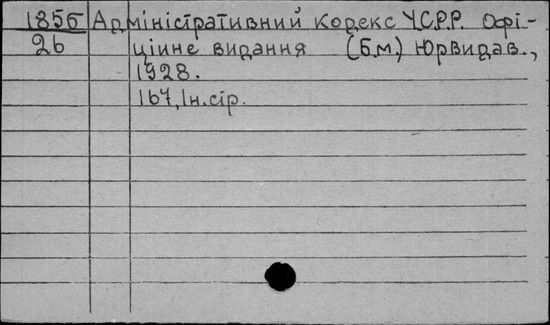 1856 Адміністративний Кодекс У.С.Р.Р. Офі-
2б ціине видання (б.м) Юрвидав.,
1928.
167,1н.сір.